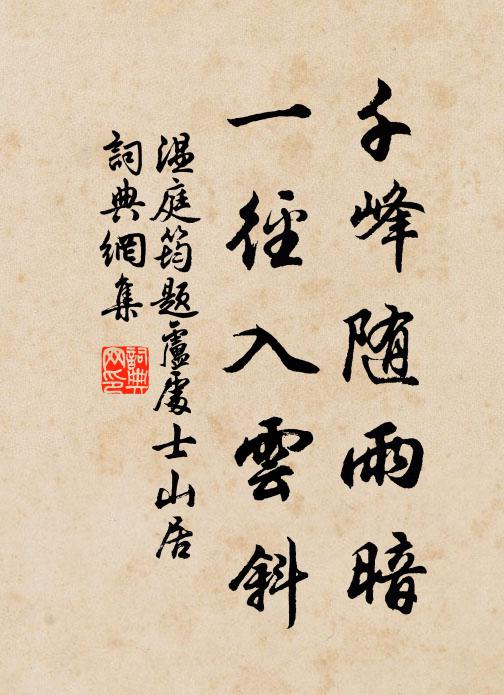 千峰随雨暗
一徑入雲斜
温庭筠題盧處士山居
詞典網集
詞典網印